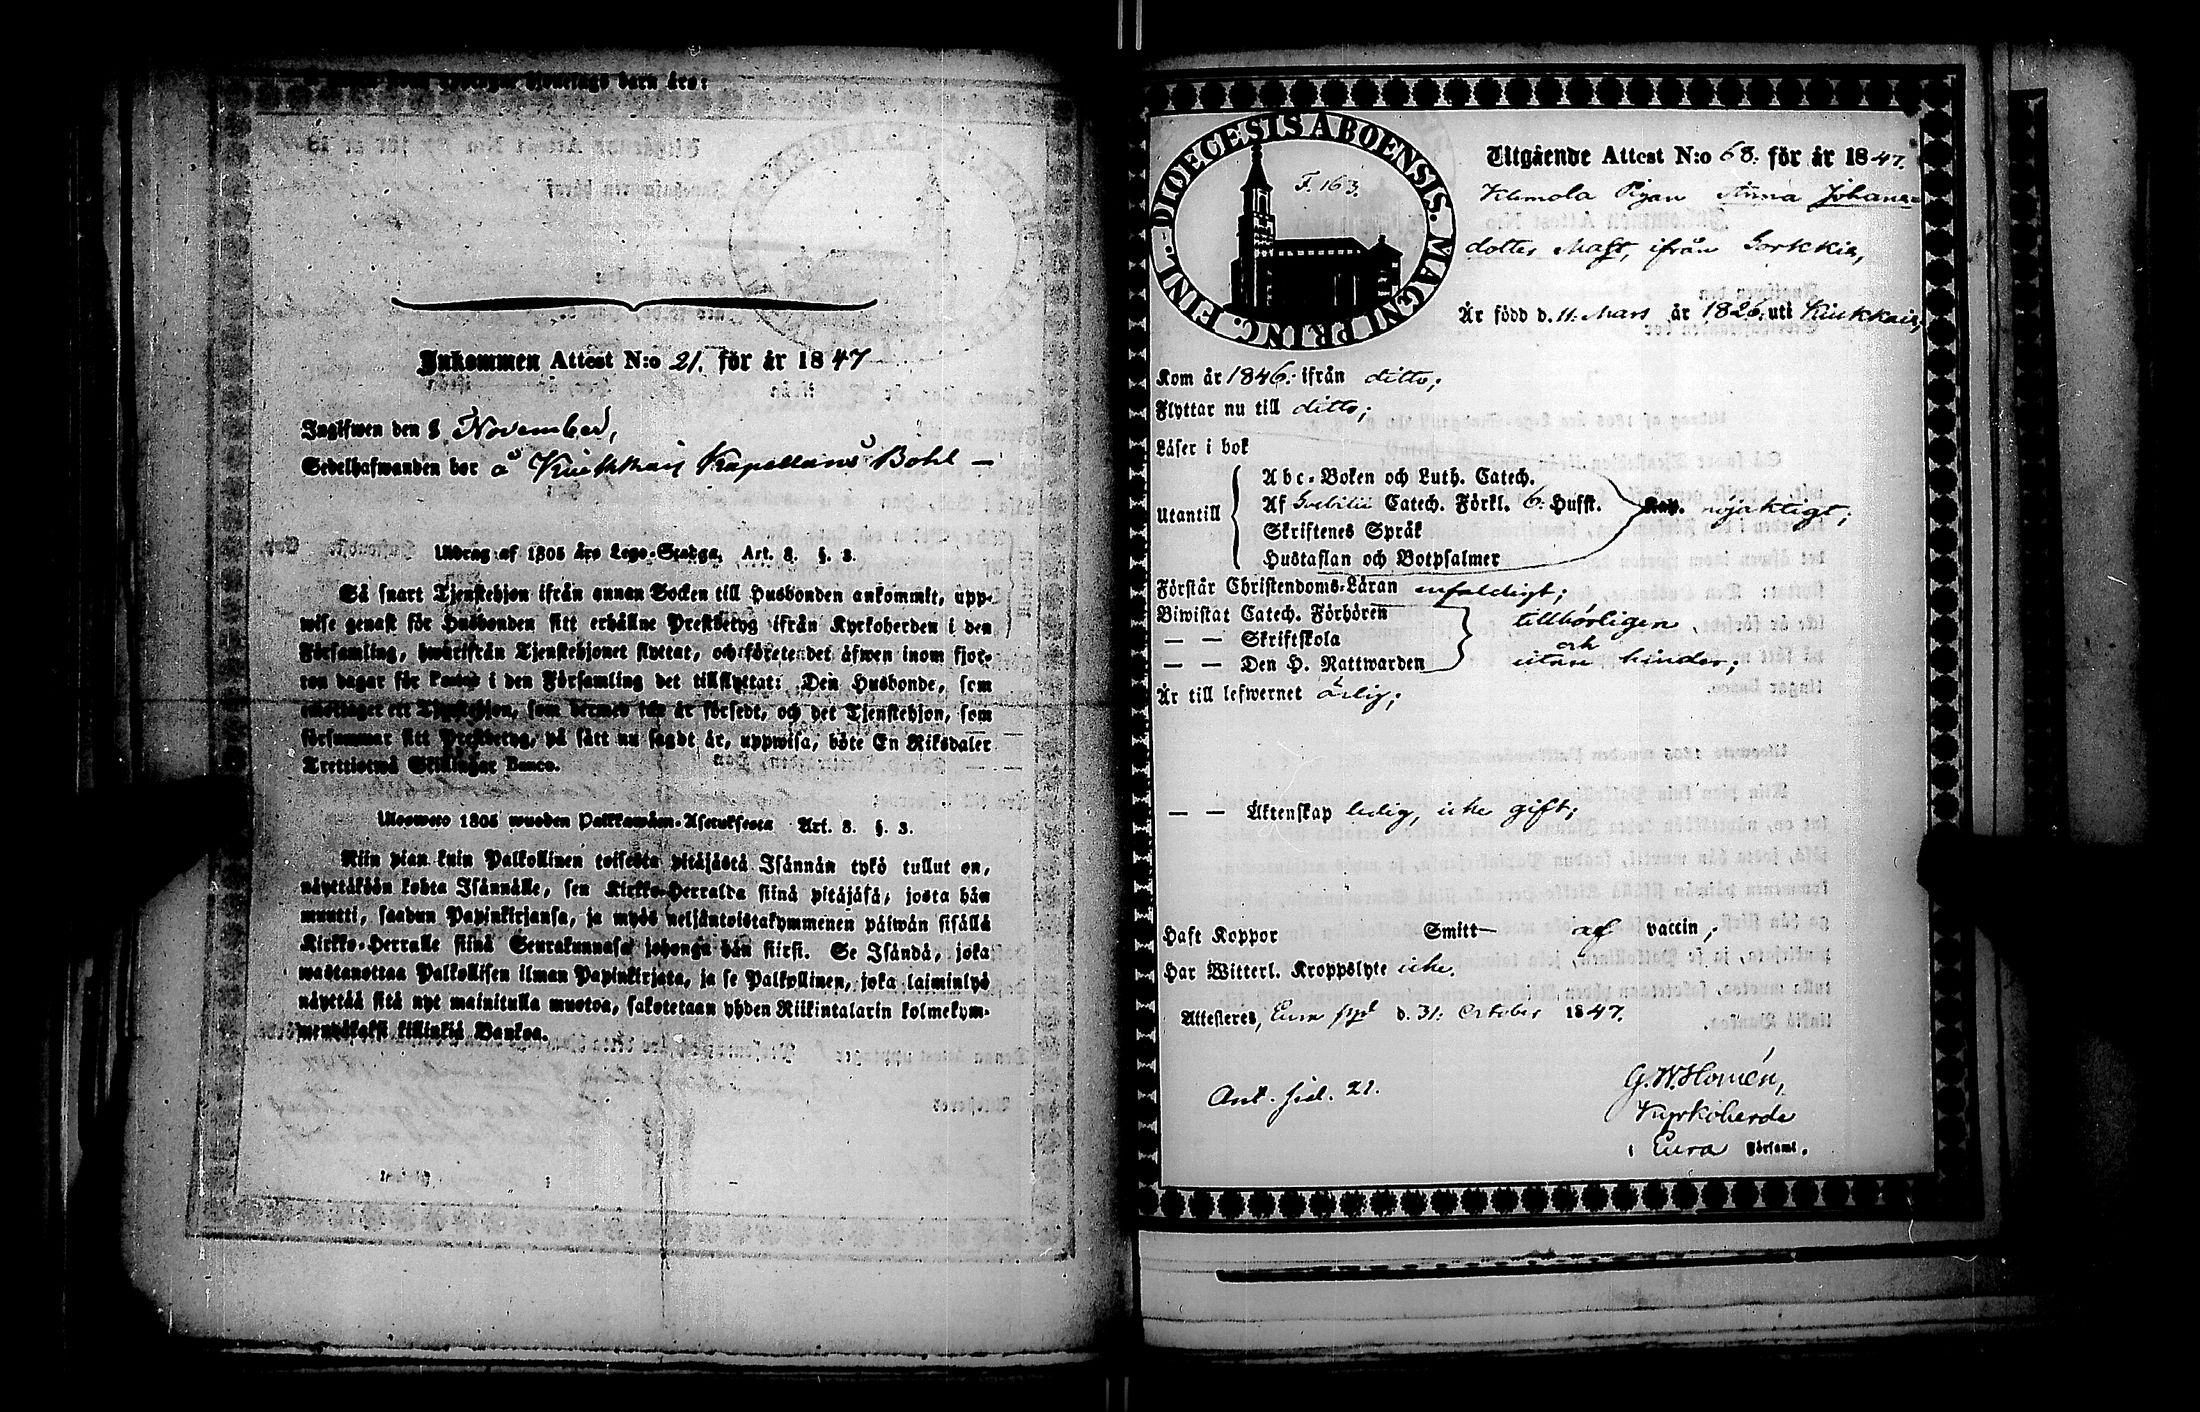 barn äro:
Inkommen Attest N:o 21. för år 1847
Ingifwen den 8 November,
Sedelhafwanden bor å Kiukkais Kapellans Bohl —
Utdrag af 1805 års Lego-Stadga, Art. 8. §. 3.
Så snart Tjenstehjon ifrån annan Socken till Husbonden ankommit, upp-
wise genast för Husbonden sitt erhållne Prestbetyg ifrån Kyrkoherden i den
Församling, hwarifrån Tjenstehjonet flyttat, och företer det äfwen inom fjor-
ton dagar för i den Församling det tillflyttat: Den Husbonde, som
emottager ett Tjenstehjon, som dermed icke är försedt, och det Tjenstehjon, som
försummar sitt Prestbetyg, på sätt nu sagdt är, uppwisa, böte En Riksdaler
Trettiotwå Skillingar Banco.
Ulosweto 1805 wuoden Palkkawäen-Asetuksesta Art. 8. §. 3.
Niin pian kuin Palkollinen toisesta pitäjästä Isännän tykö tullut on,
näyttäköön kohta Isännälle, sen Kirkko-Herralda siinä pitäjäsä, josta hän
muutti, saadun Papinkirjansa, ja myös neljäntoistakymmenen päiwän sisällä
Kirkko-Herralle siinä Seurakunnasa johonga hän siirsi. Se Isändä, joka
wastanottaa Palkollisen ilman Papinkirjata, ja se Palkollinen, joka laiminlyö
näyttää sitä nyt mainitulla muotoa, sakotetaan yhden Riikintalarin kolmekym-
mentäkaksi killinkiä Bankoa.
DIOECESIS ABOENSIS. MAGNI PRINC. FINL.
F. 163.
Utgående Attest N:o 68. för år 1847.
Klemola Pigan Anna Johans-
dotter Mast, ifrån Sorkkis,
Är född d. 11. Mars år 1826. uti Kiukkais,
Kom år 1846. ifrån ditto;
Flyttar nu till ditto;
Läser i bok
Utantill
Abc-Boken och Luth. Catech.
Af Svebilii Catech. Förkl. 6. Hufst. nöjaktigt;
Skriftenes Språk
Hustaflan och Botpsalmer
Förstår Christendoms-Läran enfaldigt;
Biwistat Catech. Förhören tillbörligen
— — Skriftskola och
— — Den H. Nattwarden utan hinder;
Är till lefwernet ärlig;
— — Äktenskap ledig, icke gift;
Haft Koppor Smitt — af vaccin;
Har Witterl. Kroppslyte icke.
Attesteres, Eura d. 31. October 1847.
G. W. Homén,
Ant. sid. 21.
Kyrkoherde
i Eura Församl.